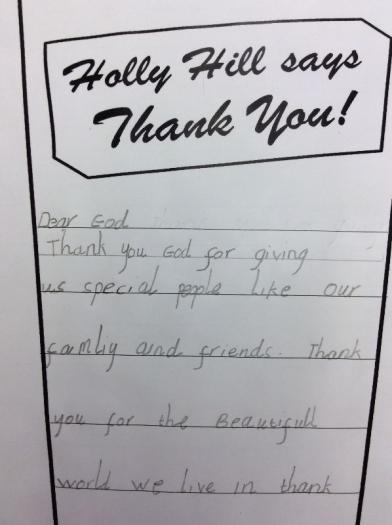 Holly Hill says
Thank You!
Dear God
Thank you God for giving
us special people like our
family and friends. Thank
you for the Beautifull
world we live in thank